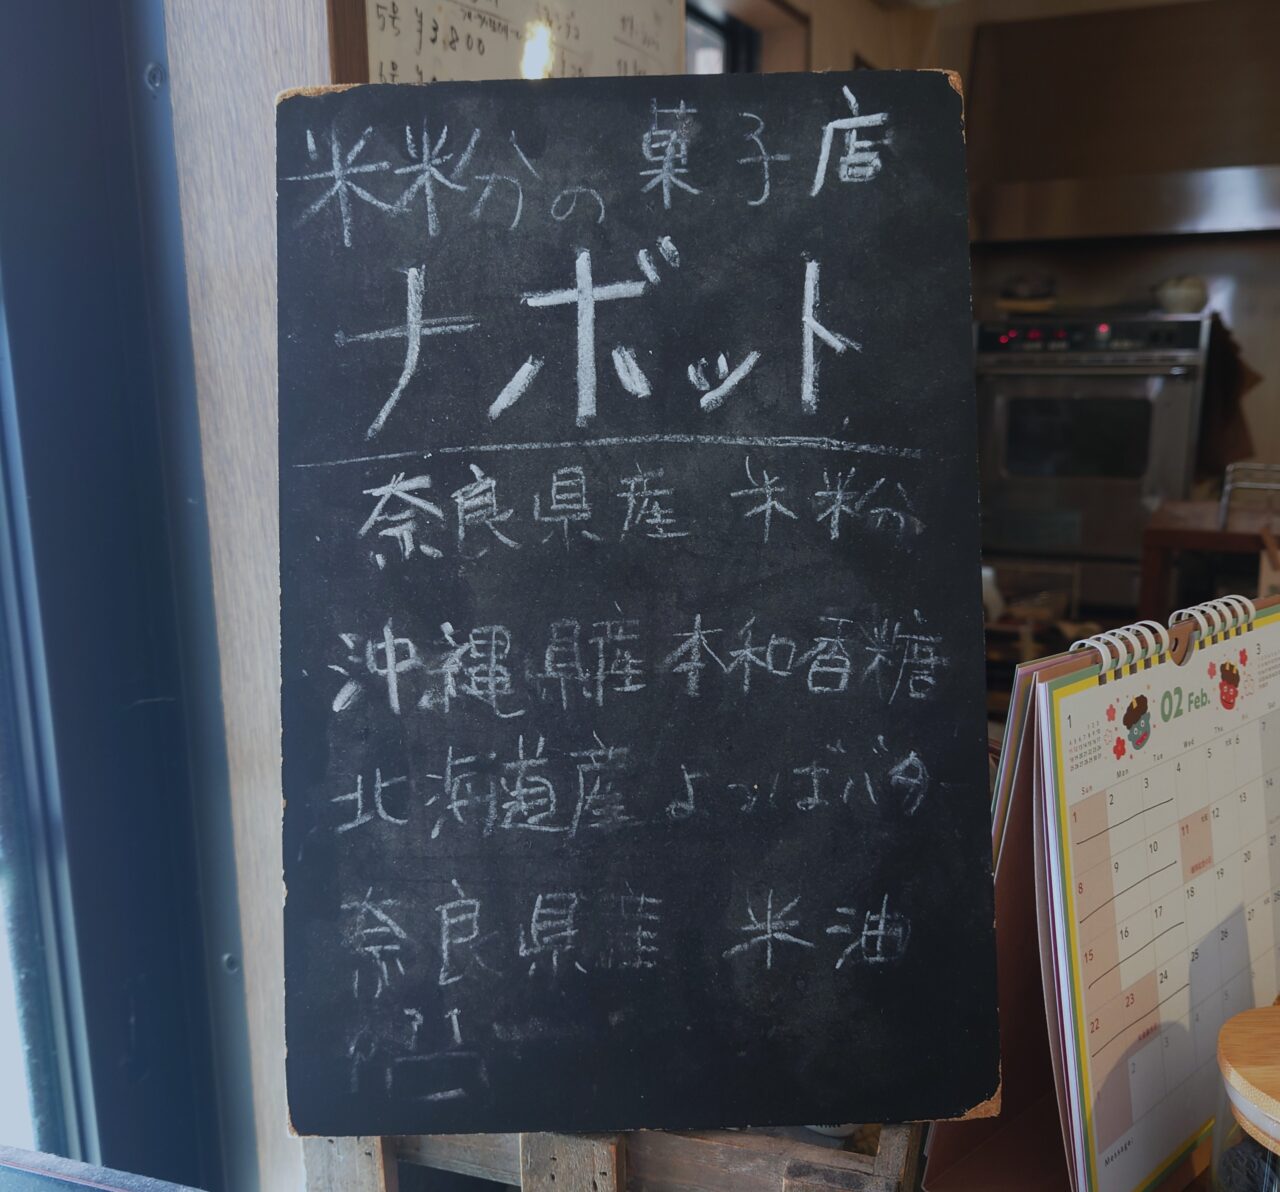 5号 ¥3,800
6号
米粉の菓子店
ナボット
奈良県産 米粉
沖縄県産 本和香糖
北海道産 よつばバター
奈良県産 米油
1
02 Feb.
3
Sun Mon Tue Wed Thu
1 2 3 4 5 6
8 9 10 11 12 13
15 16 17 18 19 20
22 23 24 25 26 27
Message: